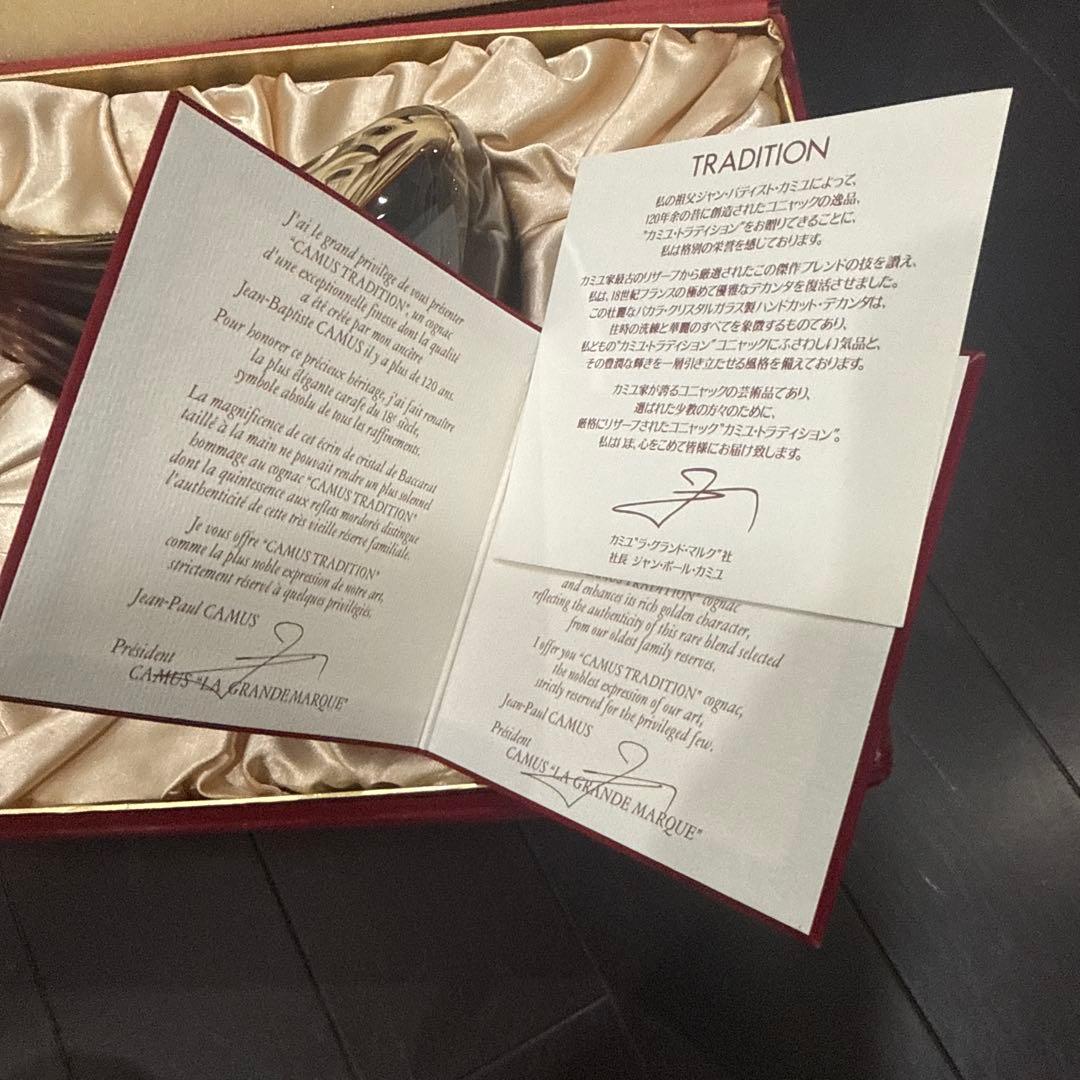 J'ai le grand privilège de vous présenter
"CAMUS TRADITION", un cognac
d'une exceptionnelle finesse dont la qualité
a été créée par mon ancêtre,
Jean-Baptiste CAMUS il y a plus de 120 ans.
Pour honorer ce précieux héritage, j'ai fait renaître
la plus élégante carafe du 18e siècle,
symbole absolu de tous les raffinements.
La magnificence de cet écrin de cristal de Baccarat
taillé à la main ne pouvait rendre un plus solennel
hommage au cognac "CAMUS TRADITION"
dont la quintessence aux reflets mordorés distingue
l'authenticité de cette très vieille réserve familiale.
Je vous offre "CAMUS TRADITION"
comme la plus noble expression de notre art,
strictement réservé à quelques privilégiés.
Jean-Paul CAMUS
Président
CAMUS "LA GRANDE MARQUE"
TRADITION
私の祖父ジャン・バティスト・カミユによって、
120年余の昔に創造されたコニャックの逸品、
"カミユ・トラディション"をお贈りできることに、
私は格別の栄誉を感じております。
カミユ家最古のリザーブから厳選されたこの傑作ブレンドの技を讃え、
私は、18世紀フランスの極めて優雅なデカンタを復活させました。
この壮麗なバカラ・クリスタルガラス製ハンドカット・デカンタは、
往時の洗練と華麗のすべてを象徴するものであり、
私どもの"カミユ・トラディション"コニャックにふさわしい気品と、
その豊潤な輝きを一層引き立たせる風格を備えております。
カミユ家が誇るコニャックの芸術品であり、
選ばれた少数の方々のために、
厳格にリザーブされたコニャック"カミユ・トラディション"。
私はいま、心をこめて皆様にお届け致します。
カミユ"ラ・グランド・マルク"社
社長 ジャン・ポール・カミユ
TRADITION" cognac
and enhances its rich golden character,
reflecting the authenticity of this rare blend selected
from our oldest family reserves.
I offer you "CAMUS TRADITION" cognac,
the noblest expression of our art,
strictly reserved for the privileged few.
Jean-Paul CAMUS
Président
CAMUS "LA GRANDE MARQUE"